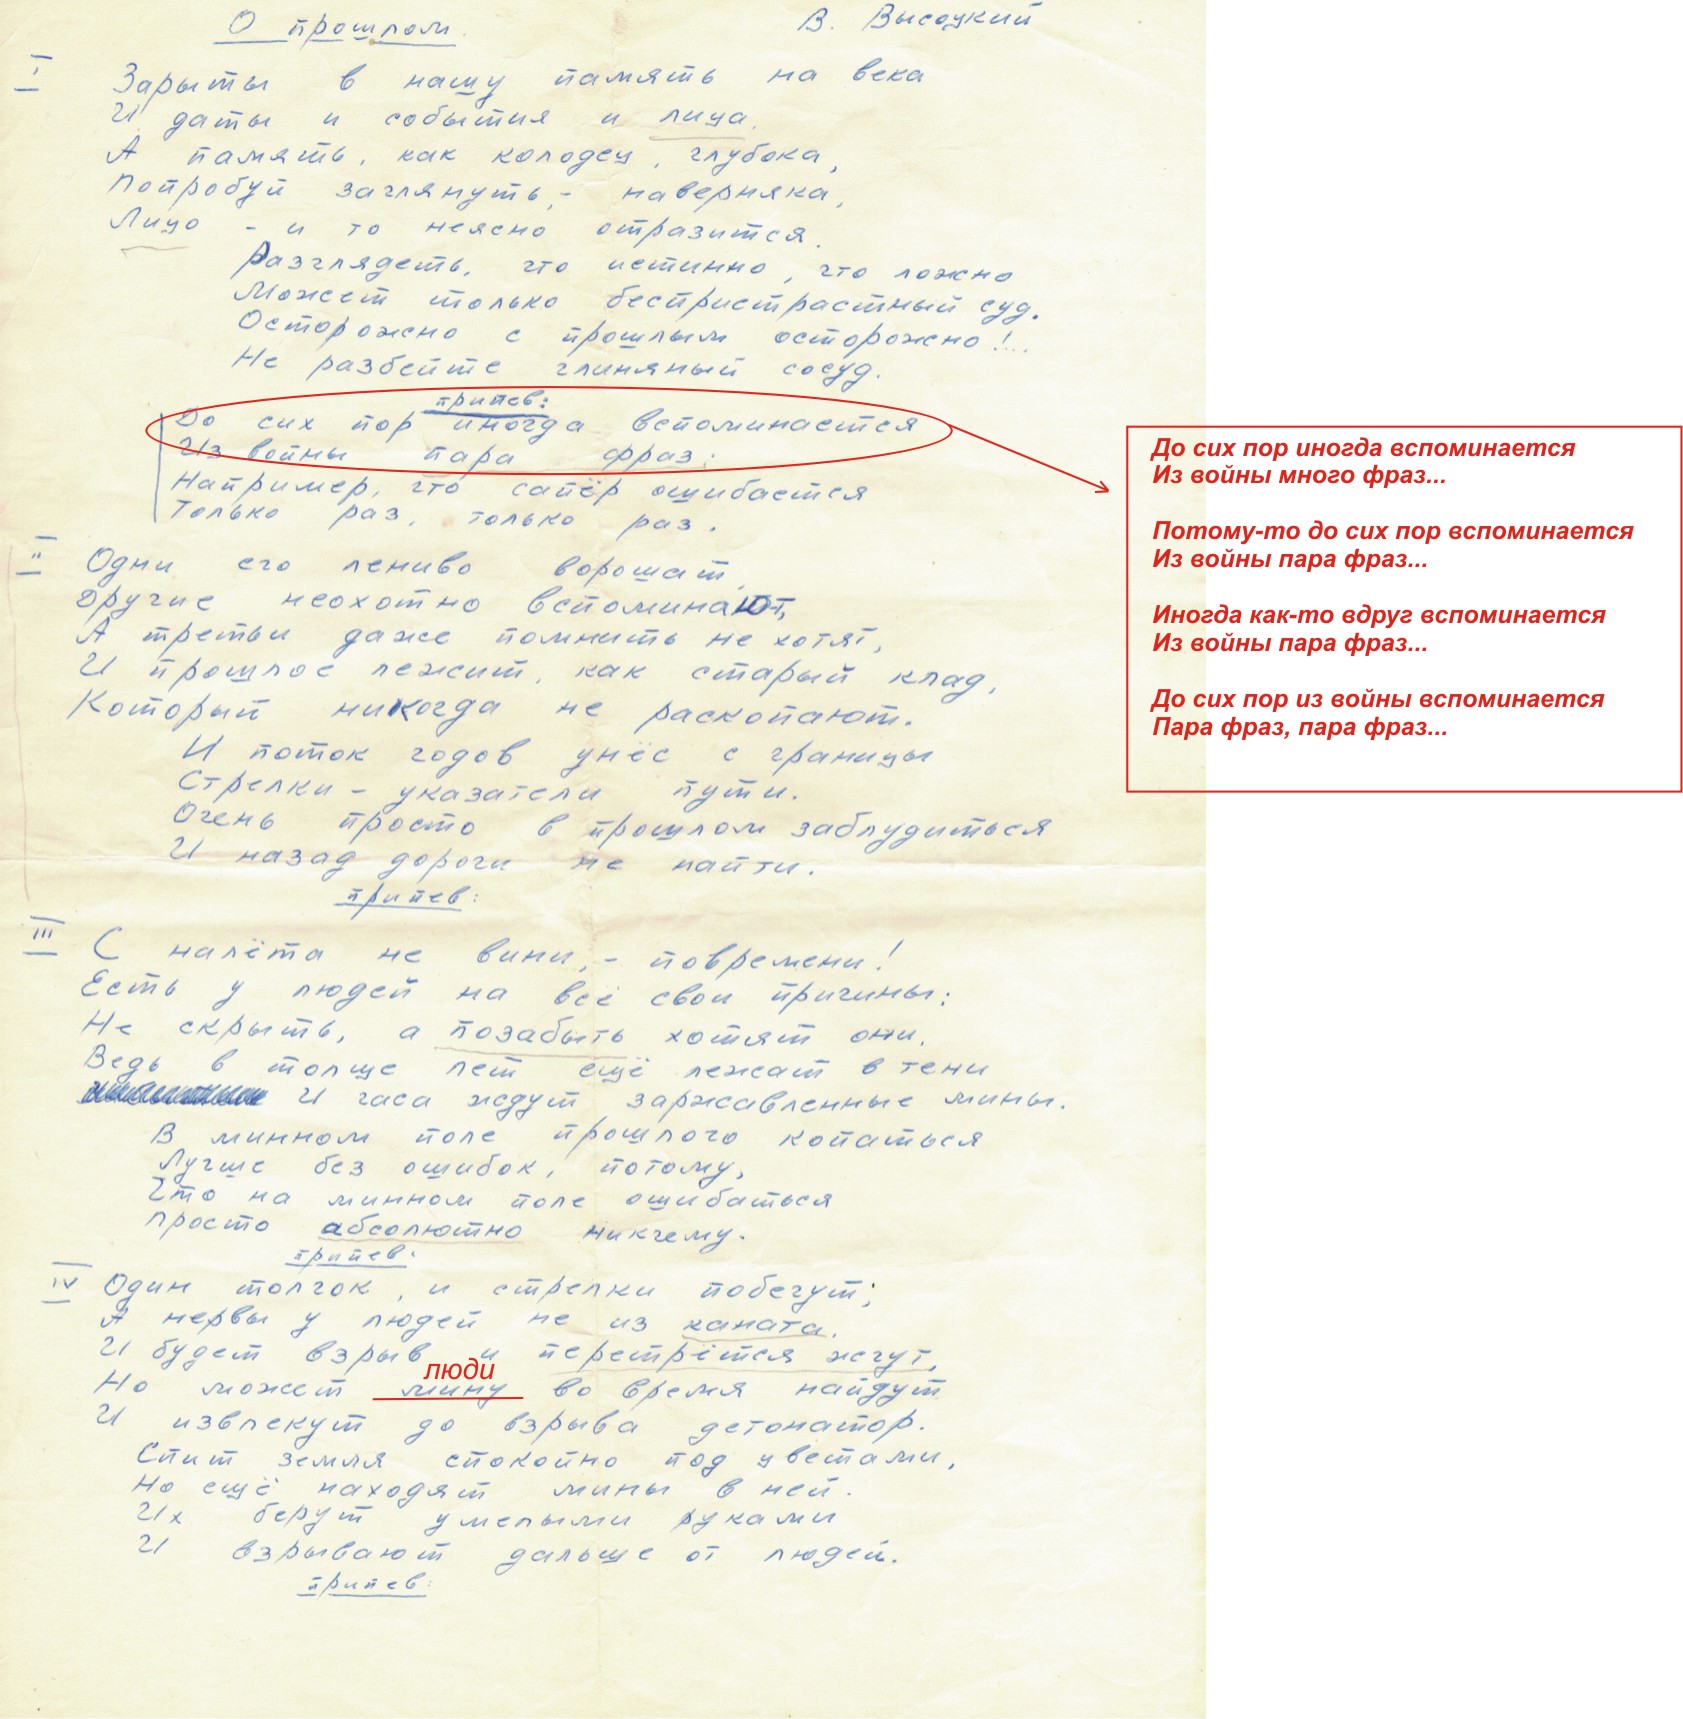 О прошлом.
В. Высоцкий
I
Зарыты в нашу память на века
И даты и события и лица.
А память, как колодец, глубока,
Попробуй заглянуть, - наверняка,
Лицо - и то неясно отразится.
Разглядеть, что истинно, что ложно
Может только беспристрастный суд.
Осторожно с прошлым осторожно!...
Не разбейте глиняный сосуд.
припев:
До сих пор иногда вспоминается
Из войны пара фраз:
Например, что сапёр ошибается
Только раз, только раз.
До сих пор иногда вспоминается
Из войны много фраз...
Потому-то до сих пор вспоминается
Из войны пара фраз...
Иногда как-то вдруг вспоминается
Из войны пара фраз...
До сих пор из войны вспоминается
Пара фраз, пара фраз...
II
Одни его лениво ворошат,
Другие неохотно вспоминают,
А третьи даже помнить не хотят,
И прошлое лежит, как старый клад,
Который никогда не раскопают.
И поток годов унёс с границы
Стрелки - указатели пути.
Очень просто в прошлом заблудиться
И назад дороги не найти.
припев:
III
С налёта не вини, - повремени!
Есть у людей на всё свои причины:
Не скрыть, а позабыть хотят они.
Ведь в толще лет ещё лежат в тени
И часа ждут заржавленные мины.
В минном поле прошлого копаться
Лучше без ошибок, потому,
Что на минном поле ошибаться
Просто абсолютно никчему.
припев:
IV
Один толчок, и стрелки побегут;
А нервы у людей не из каната.
И будет взрыв и перетрётся жгут,
люди
Но может мину во время найдут
И извлекут до взрыва детонатор.
Спит земля спокойно под цветами,
Но ещё находят мины в ней.
Их берут умелыми руками
И взрывают дальше от людей.
припев: